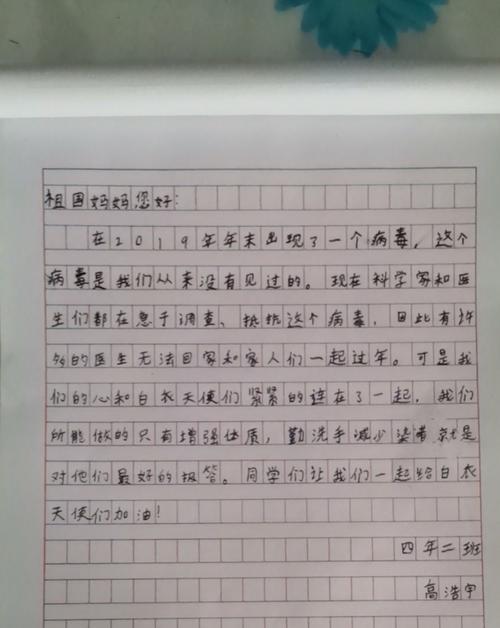 祖国妈妈您好:
在2019年年末出现了一个病毒,这个
病毒是我们从来没有见过的。现在科学家和医
生们都在急于调查、抗这个病毒,因此有许
多的医生无法回家和家人们一起过年。可是我
们的心和白衣天使们紧紧的连在了一起,我们
所能做的只有增强体质,勤洗手减少染毒就是
对他们最好的报答。同学们让我们一起给白衣
天使们加油!
四年二班
高浩宇